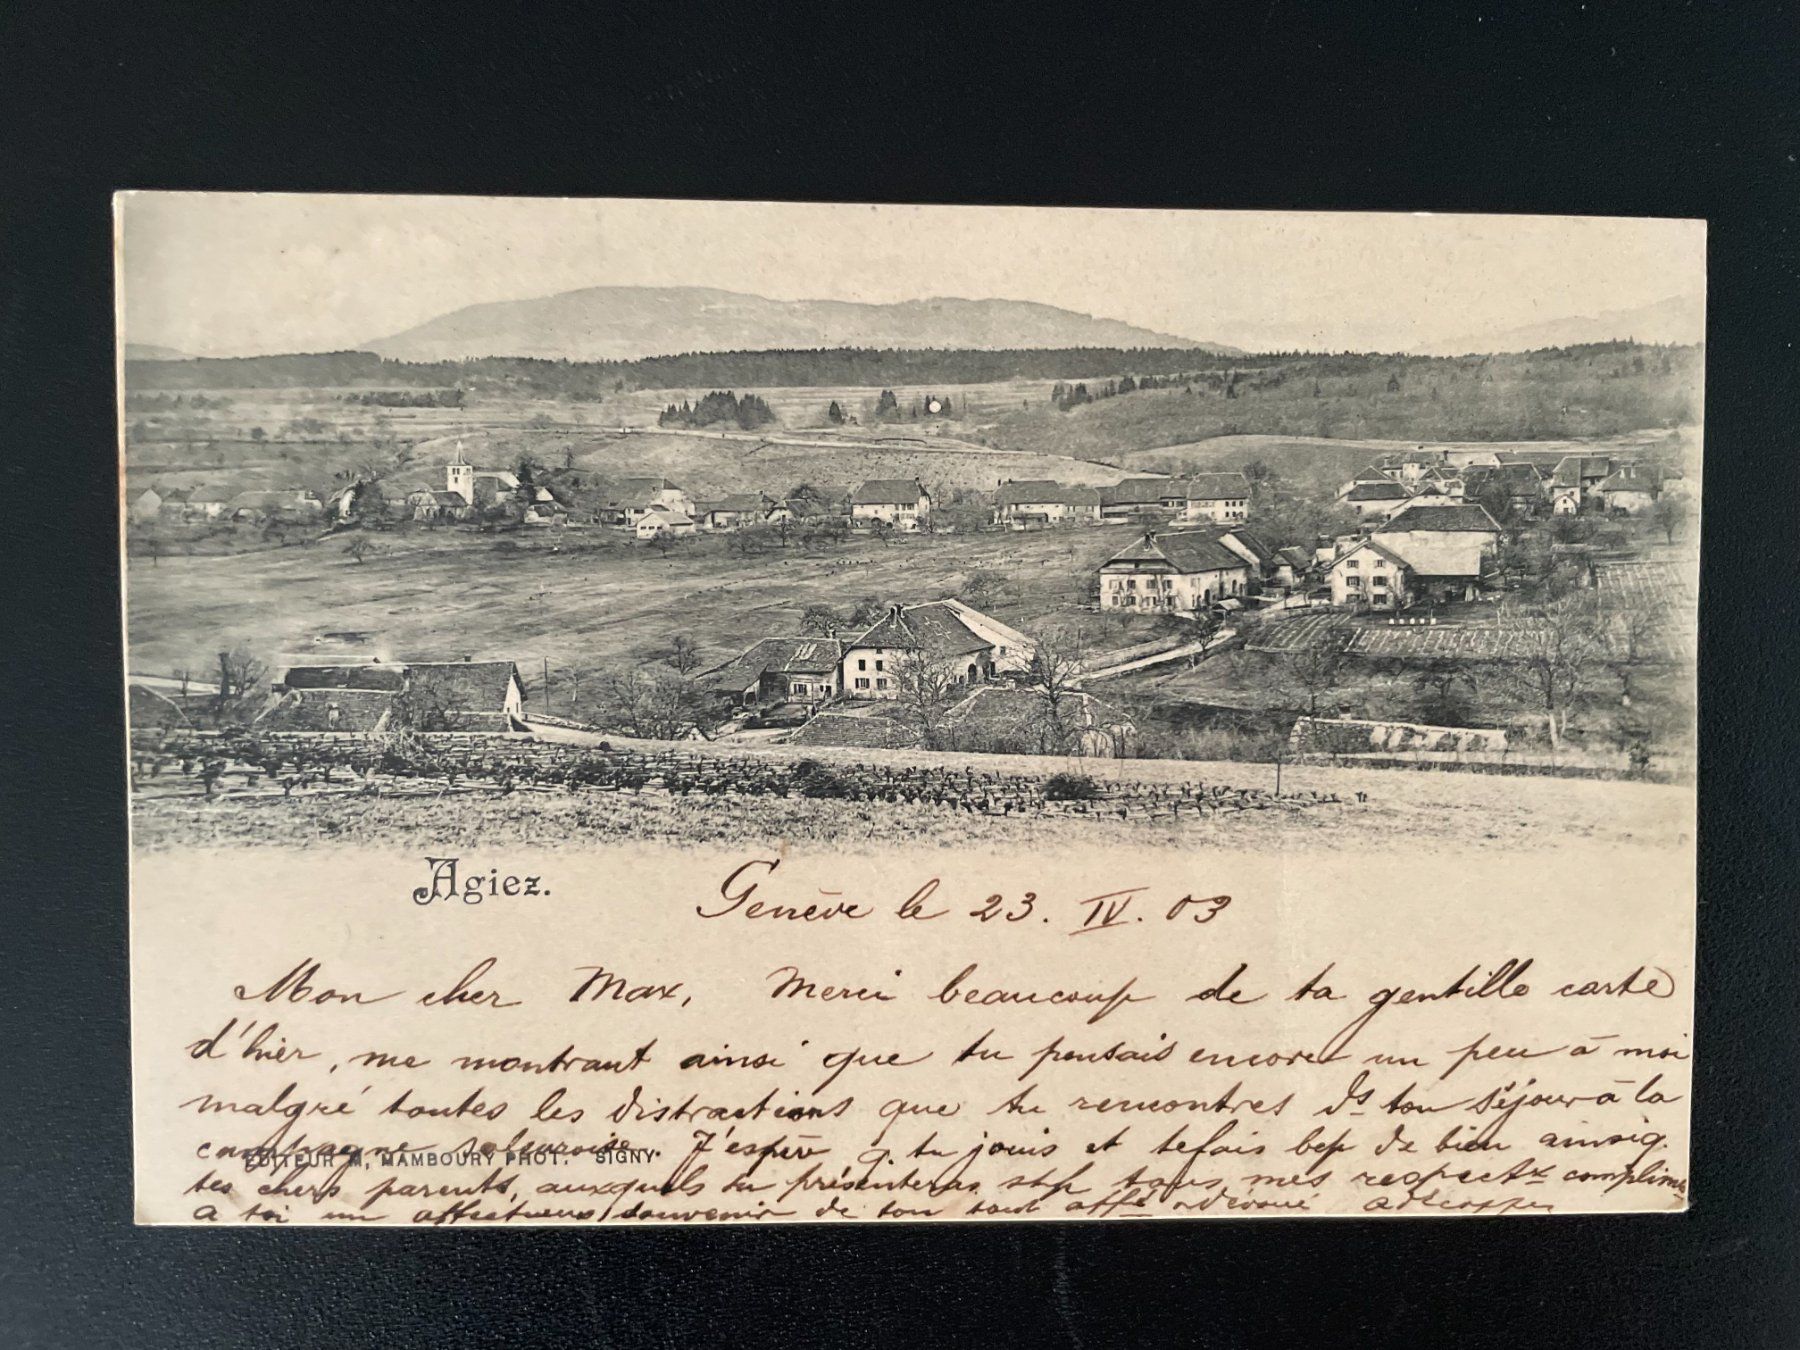 Agiez.
Genève le 23. IV. 03
Mon cher Max, Merci beaucoup de ta gentille carte
d'hier, me montrant ainsi que tu pensais encore un peu à moi
malgré toutes les distractions que tu rencontres ds ton séjour à la
campagne J'espère q. tu jouis et te fais bcp de bien ainsi q.
EDITEUR M. MAMBOURY PHOT. SIGNY.
tes chers parents, auxquels tu présenteras stp tous mes respectx complim
à toi un affectueux souvenir de ton tout affé & dévoué